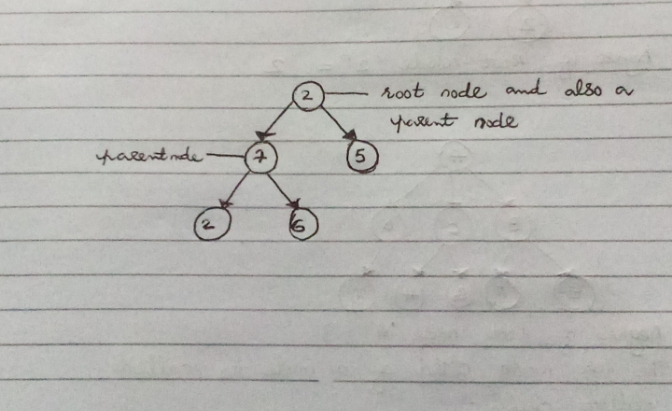 2 root node and also a
parent node
parent node 7 5
2 6